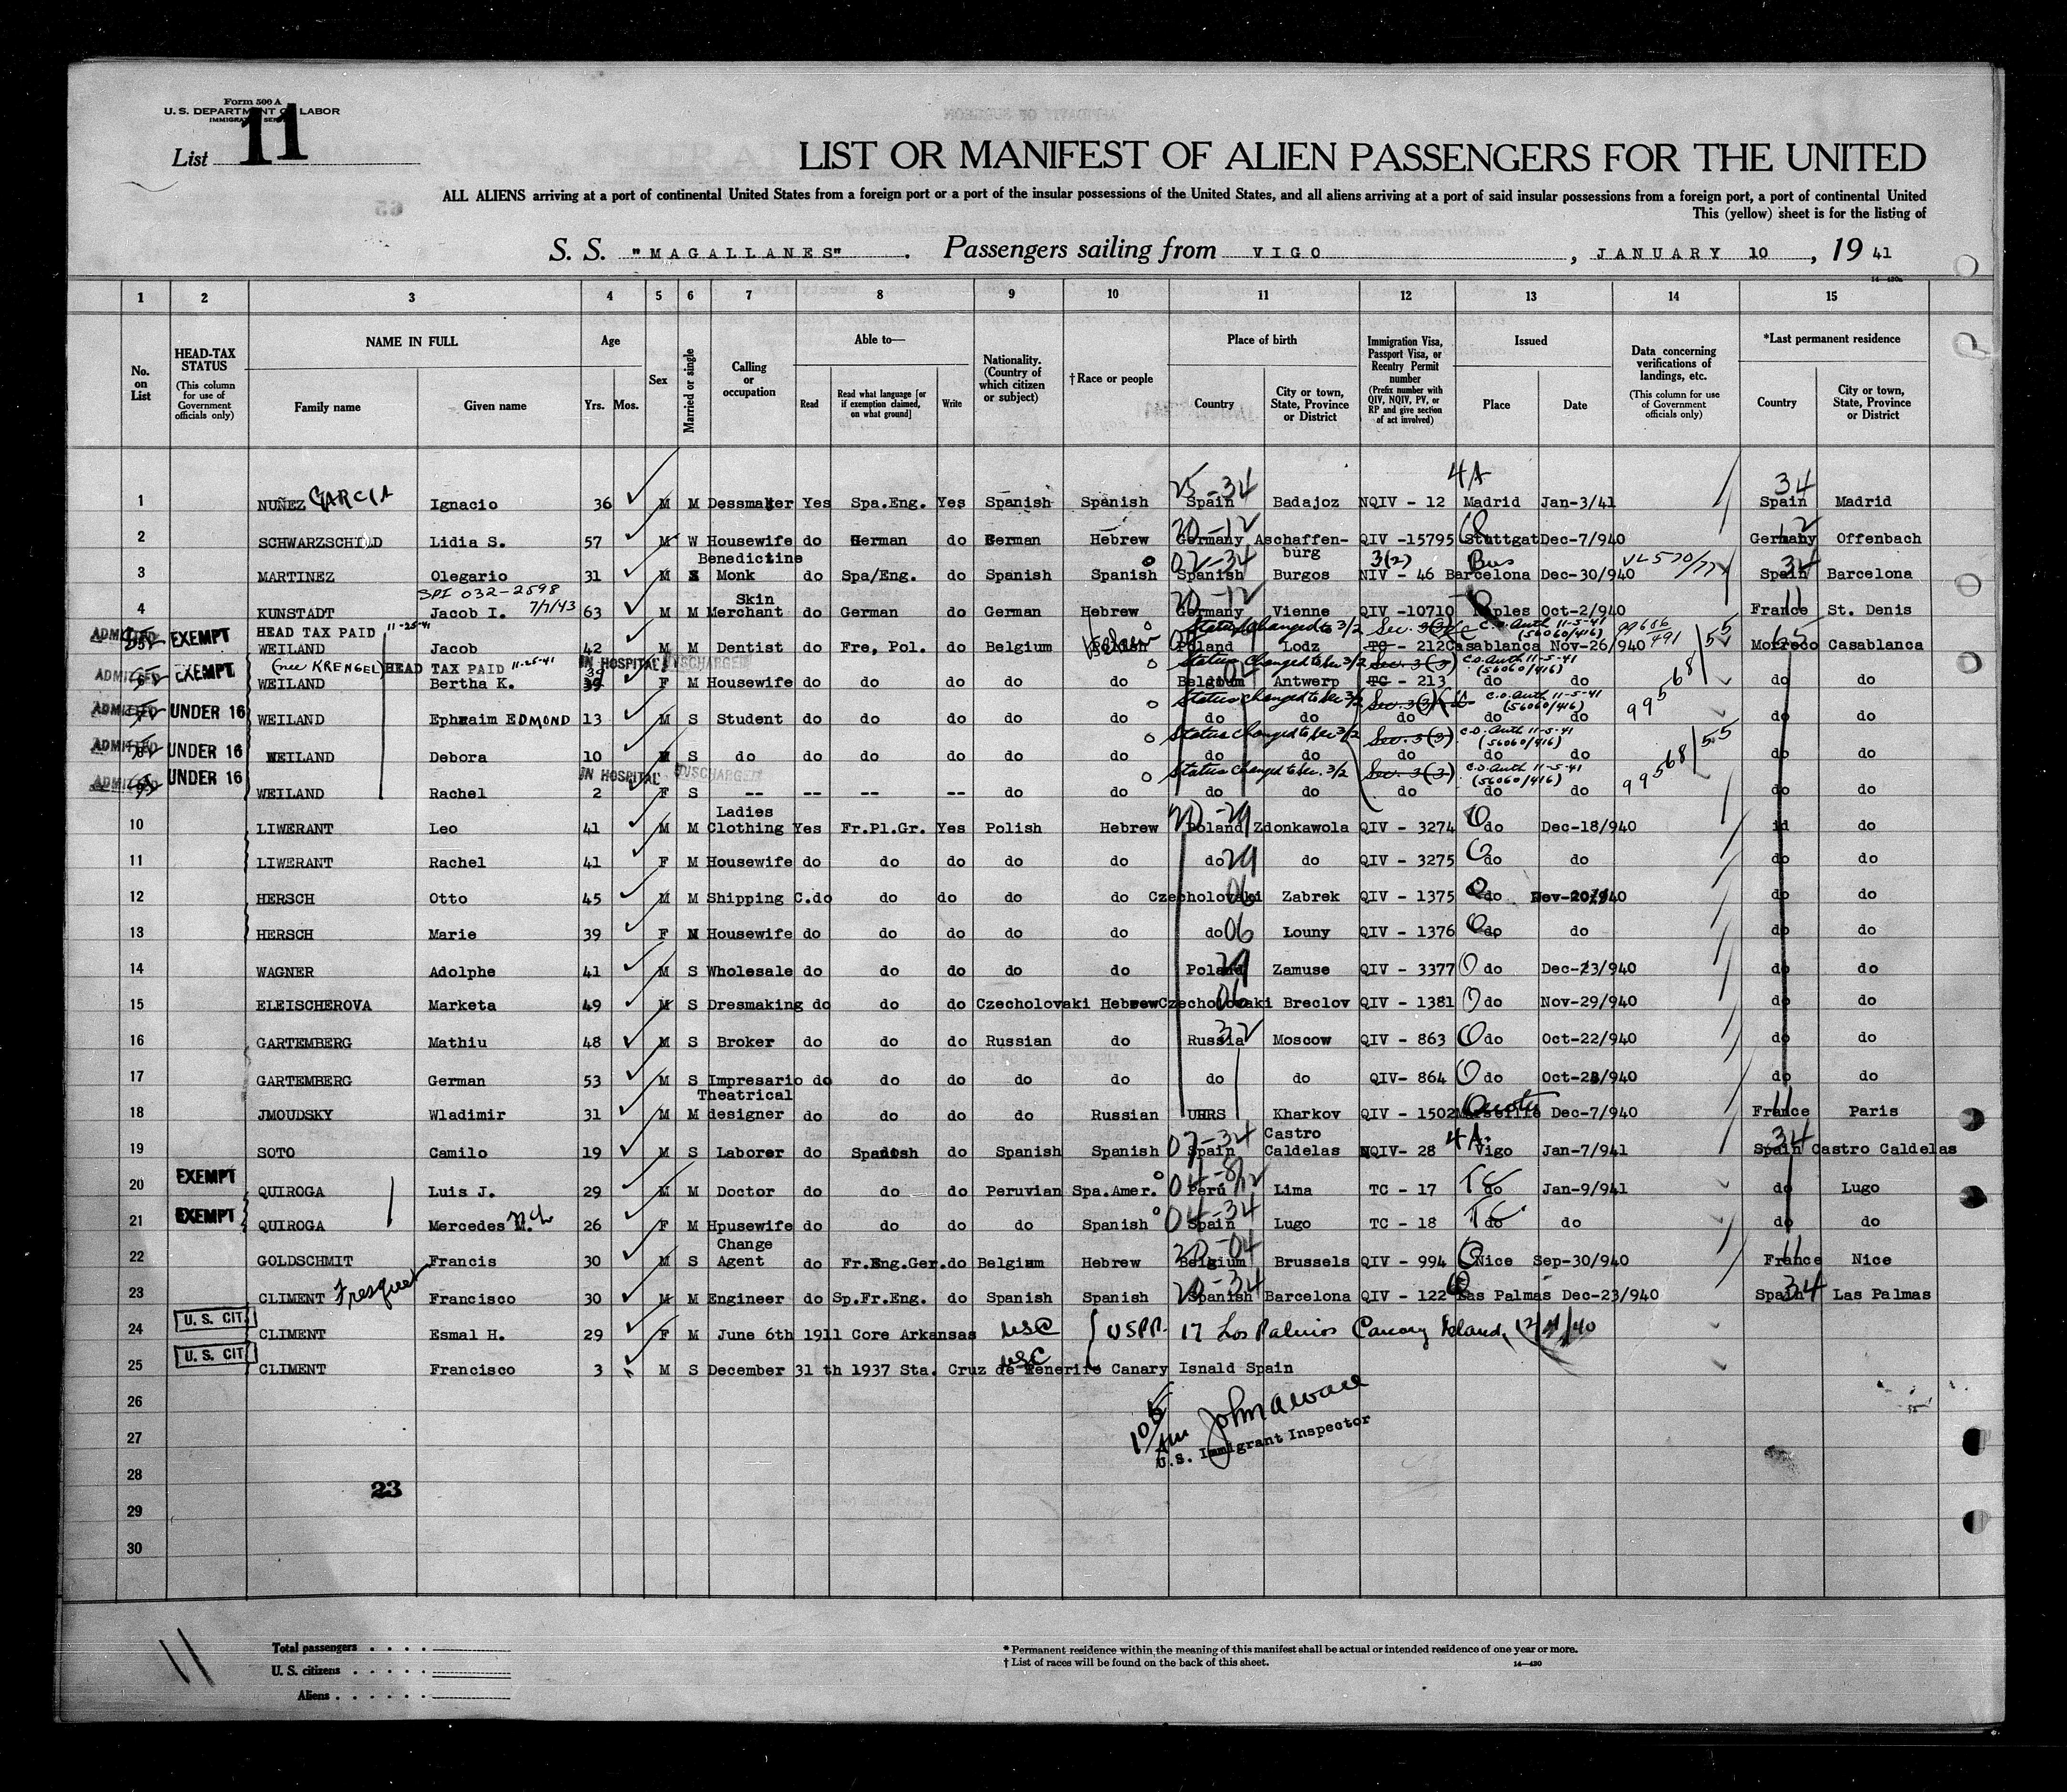 Form 500 A
U. S. DEPARTMENT OF LABOR
List 11
LIST OR MANIFEST OF ALIEN PASSENGERS FOR THE UNITED
ALL ALIENS arriving at a port of continental United States from a foreign port or a port of the insular possessions of the United States, and all aliens arriving at a port of said insular possessions from a foreign port, a port of continental United
This (yellow) sheet is for the listing of
S. S. "MAGALLANES". Passengers sailing from VIGO, JANUARY 10, 1941
1 2 3 4 5 6 7 8 9 10 11 12 13 14 15
No. on List
HEAD-TAX STATUS (This column for use of Government officials only)
NAME IN FULL Family name Given name
Age Yrs. Mos.
Sex
Married or single
Calling or occupation
Able to— Read Read what language [or if exemption claimed, on what ground] Write
Nationality. (Country of which citizen or subject)
†Race or people
Place of birth Country City or town, State, Province or District
Immigration Visa, Passport Visa, or Reentry Permit number (Prefix number with QIV, NQIV, PV, or RP and give section of act involved)
Issued Place Date
Data concerning verifications of landings, etc. (This column for use of Government officials only)
*Last permanent residence Country City or town, State, Province or District
4A
1 NUÑEZ GARCIA Ignacio 36 M M Dessmaker Yes Spa.Eng. Yes Spanish Spanish 25-34 Spain Badajoz NQIV - 12 Madrid Jan-3/41 34 Spain Madrid
2 SCHWARZSCHILD Lidia S. 57 M W Housewife do German do German Hebrew 20-12 Germany Aschaffenburg QIV -15795 Stuttgat Dec-7/940 12 Germany Offenbach
3 MARTINEZ Olegario 31 M S Benedictine Monk do Spa/Eng. do Spanish Spanish 07-34 Spanish Burgos 3(2) NIV - 46 Bus Barcelona Dec-30/940 34 Spain Barcelona
SPI 032-2598 7/7/43
4 KUNSTADT Jacob I. 63 M M Skin Merchant do German do German Hebrew 20-12 Germany Vienne QIV -10710 Naples Oct-2/940 11 France St. Denis
HEAD TAX PAID 11-25-41 Status Changed to 3/2 C.O. Auth 11-5-41 (56060/416)
ADMITTED EXEMPT WEILAND Jacob 42 M M Dentist do Fre, Pol. do Belgium Poland Lodz TC - 212 Casablanca Nov-26/940 65 Morroco Casablanca
(nee KRENGEL) HEAD TAX PAID 11-25-41 IN HOSPITAL DISCHARGED Status Changed to Sec 3/2 Sec. 3(3) C.O. Auth 11-5-41 (56060/416)
ADMITTED EXEMPT WEILAND Bertha K. 39 F M Housewife do do do do do Belgium Antwerp TC - 213 do do do do
Status Changed to Sec 3/2 Sec. 3(3) C.O. Auth 11-5-41 (56060/416)
ADMITTED UNDER 16 WEILAND Ephraim EDMOND 13 M S Student do do do do do do do do do do do do
Status Changed to Sec 3/2 Sec. 3(3) C.O. Auth 11-5-41 (56060/416)
ADMITTED UNDER 16 WEILAND Debora 10 M S do do do do do do do do do do do do do
IN HOSPITAL DISCHARGED Status Changed to Sec. 3/2 Sec. 3(3) C.O. Auth 11-5-41 (56060/416)
ADMITTED UNDER 16 WEILAND Rachel 2 F S -- -- -- -- do do do do do do do do do
10 LIWERANT Leo 41 M M Ladies Clothing Yes Fr.Pl.Gr. Yes Polish Hebrew Poland Zdonkawola QIV - 3274 do Dec-18/940 id do
11 LIWERANT Rachel 41 F M Housewife do do do do do do 29 do QIV - 3275 do do do do
12 HERSCH Otto 45 M M Shipping C. do do do do do Czecholovaki 06 Zabrek QIV - 1375 do Nov-20/940 do do
13 HERSCH Marie 39 F M Housewife do do do do do do 06 Louny QIV - 1376 do do do do
14 WAGNER Adolphe 41 M S Wholesale do do do do do Poland 29 Zamuse QIV - 3377 do Dec-23/940 do do
15 ELEISCHEROVA Marketa 49 M S Dresmaking do do do Czecholovaki Hebrew Czecholovaki 06 Breclov QIV - 1381 do Nov-29/940 do do
16 GARTEMBERG Mathiu 48 M S Broker do do do Russian do Russia 32 Moscow QIV - 863 do Oct-22/940 do do
17 GARTEMBERG German 53 M S Impresario do do do do do do do QIV- 864 do Oct-28/940 do do
18 JMOUDSKY Wladimir 31 M M Theatrical designer do do do do Russian URRS Kharkov QIV - 1502 Marseille Dec-7/940 11 France Paris
19 SOTO Camilo 19 M S Laborer do Spanish do Spanish Spanish 07-34 Spain Castro Caldelas NQIV- 28 4A. Vigo Jan-7/941 34 Spain Castro Caldelas
20 EXEMPT QUIROGA Luis J. 29 M M Doctor do do do Peruvian Spa.Amer. Perú Lima TC - 17 TC do Jan-9/941 do Lugo
21 EXEMPT QUIROGA Mercedes 26 F M Hpusewife do do do do Spanish 04-34 Spain Lugo TC - 18 TC do do do do
22 GOLDSCHMIT Francis 30 M S Change Agent do Fr.Eng.Ger. do Belgium Hebrew 20-04 Belgium Brussels QIV - 994 Nice Sep-30/940 11 France Nice
23 CLIMENT Fresquet Francisco 30 M M Engineer do Sp.Fr.Eng. do Spanish Spanish 20-34 Spanish Barcelona QIV - 122 Las Palmas Dec-23/940 34 Spain Las Palmas
24 U. S. CIT CLIMENT Esmal H. 29 F M June 6th 1911 Core Arkansas USC USPP. 17 Los Palmios Canary Island, 12/4/40
25 U. S. CIT CLIMENT Francisco 3 M S December 31 th 1937 Sta. Cruz de Tenerife Canary Isnald Spain USC
26
27
28
29
30
John A Ware
U.S. Immigrant Inspector
23
11
Total passengers . . . .
U. S. citizens . . . . .
Aliens . . . . . .
* Permanent residence within the meaning of this manifest shall be actual or intended residence of one year or more.
† List of races will be found on the back of this sheet.
14—430